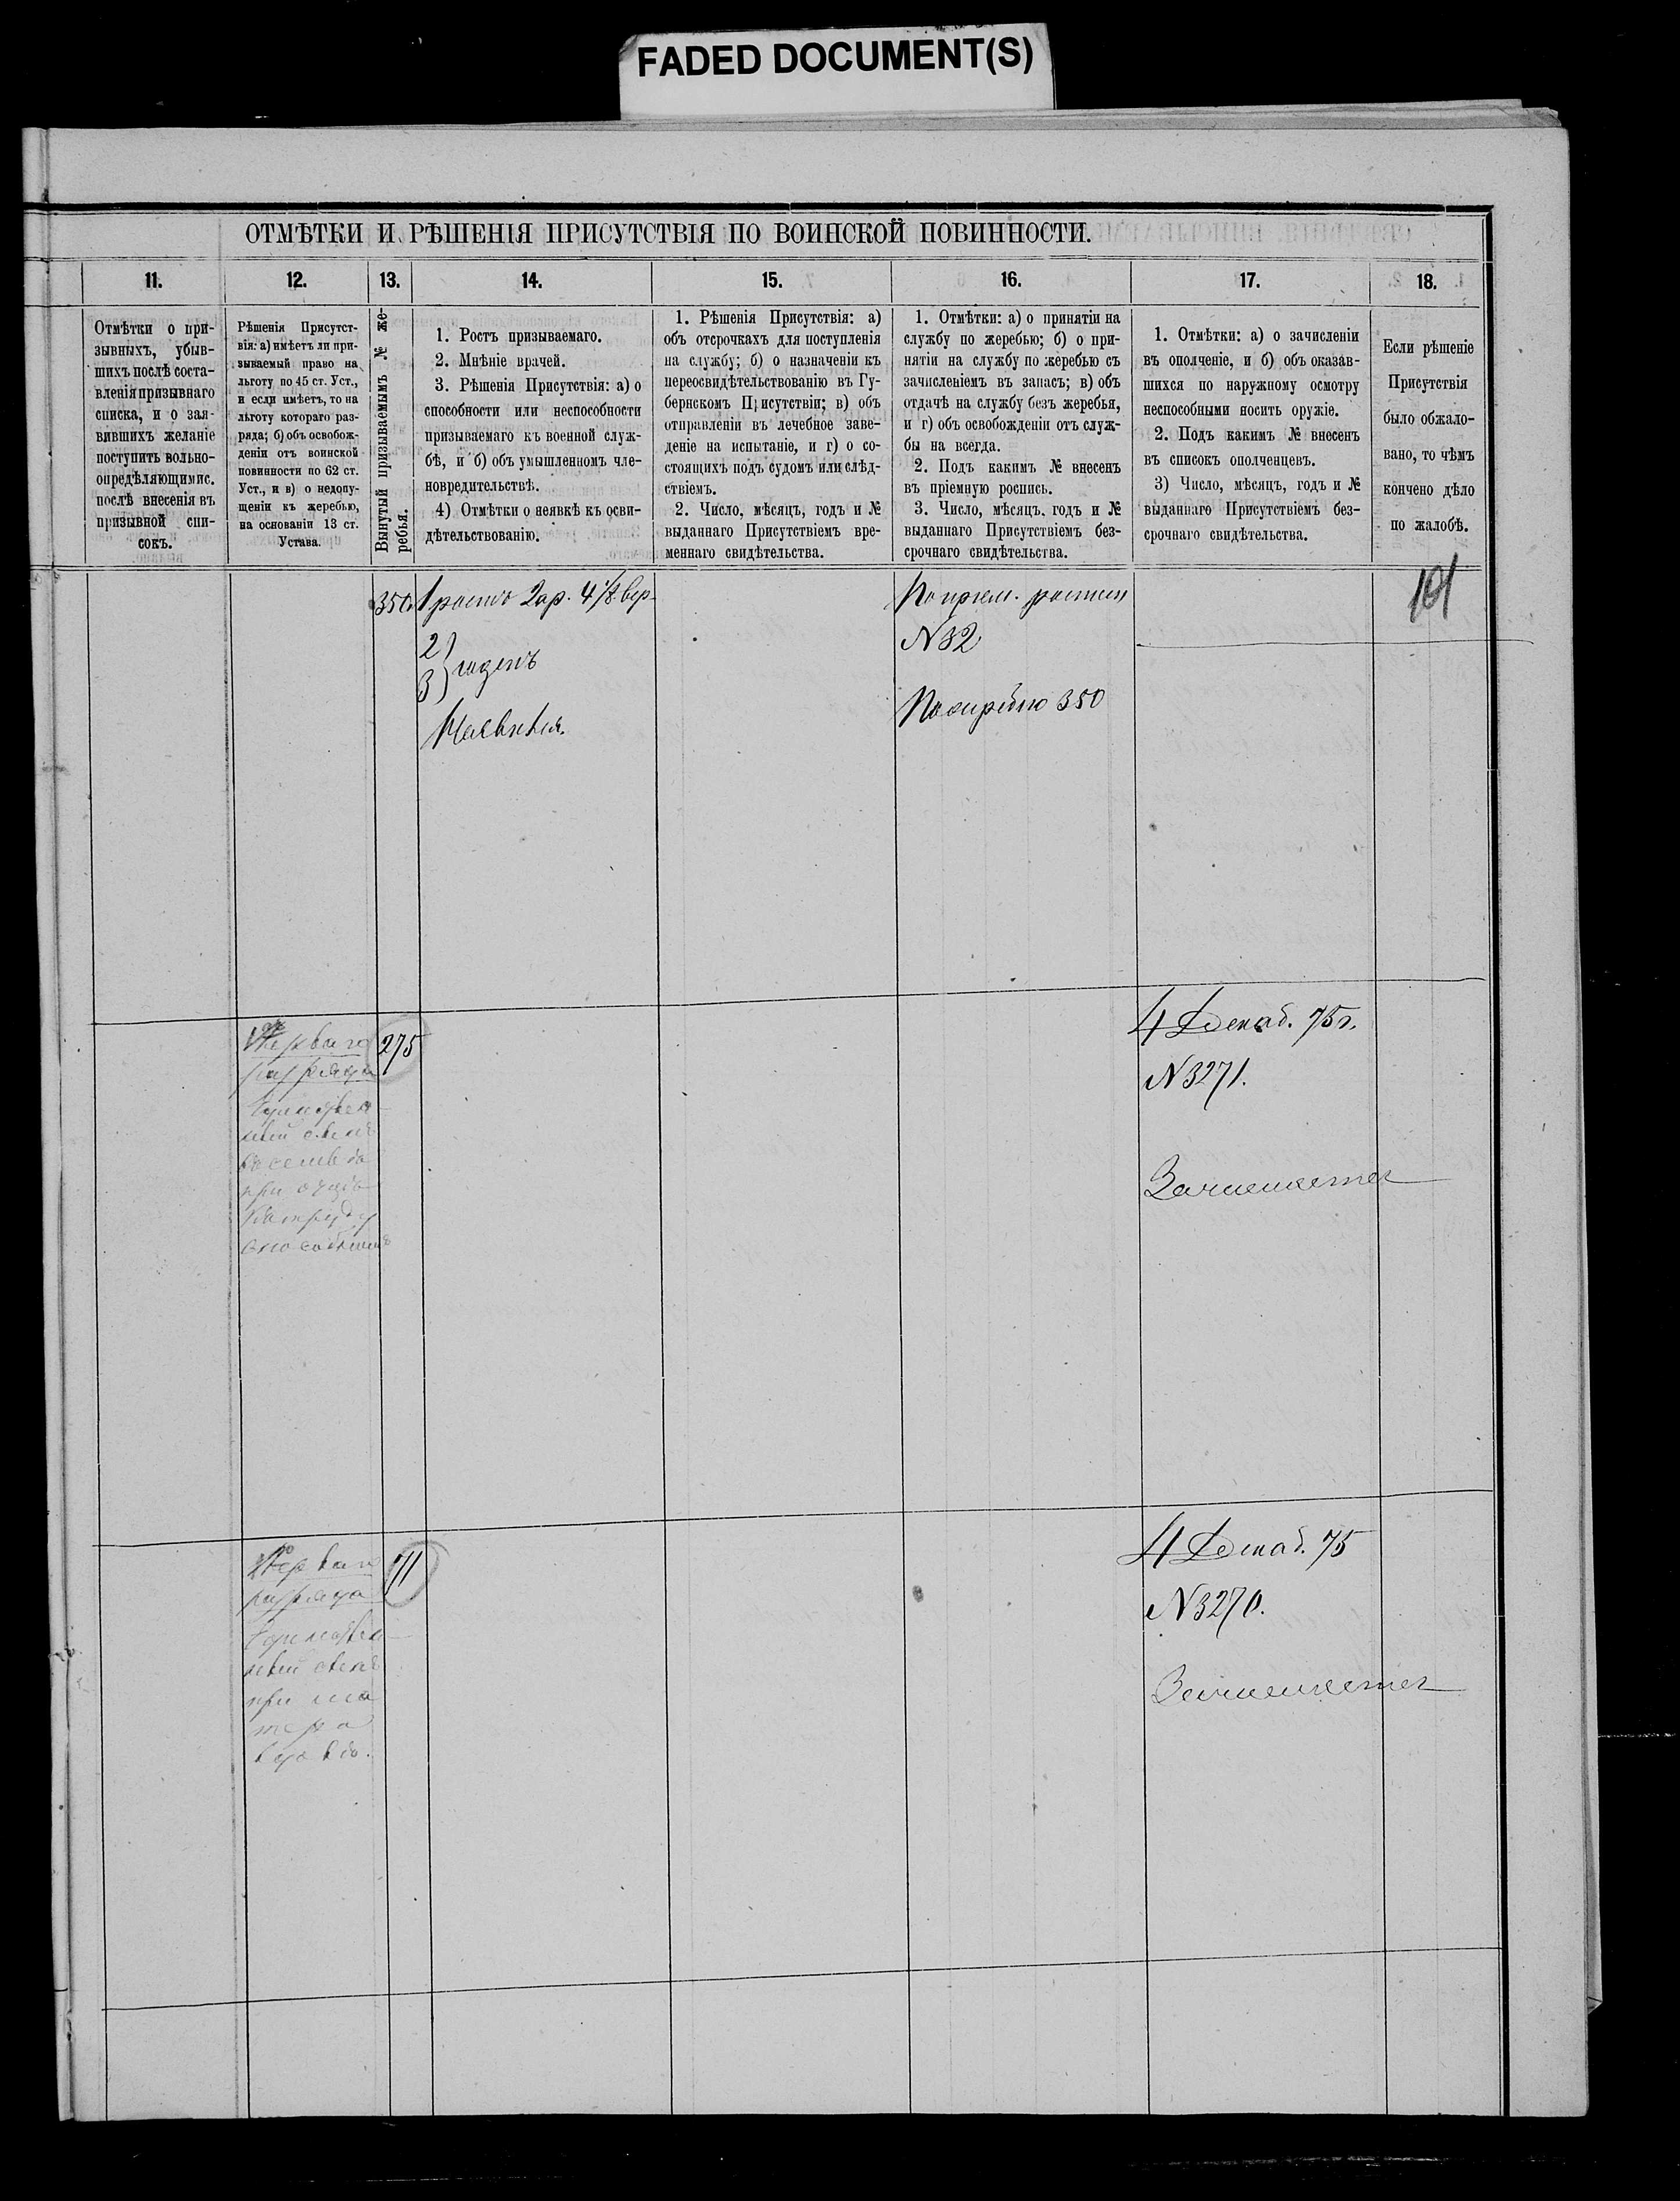 FADED DOCUMENT(S)
ОТМѢТКИ И РѢШЕНІЯ ПРИСУТСТВІЯ ПО ВОИНСКОЙ ПОВИННОСТИ.
11.
12.
13.
14.
15.
16.
17.
18.
Отмѣтки о при-
зывныхъ, убыв-
шихъ послѣ соста-
вленія призывнаго
списка, и о зая-
вившихъ желаніе
поступить вольно-
опредѣляющимис.
послѣ внесенія въ
призывной спи-
сокъ.
Рѣшенія Присутст-
вія: а) имѣетъ ли при-
зываемый право на
льготу по 45 ст. Уст.,
и если имѣетъ, то на
льготу котораго раз-
ряда; б) объ освобож-
деніи отъ воинской
повинности по 62 ст.
Уст., и в) о недопу-
щеніи къ жеребью,
на основаніи 13 ст.
Устава.
Вынутый призываемымъ № же-
ребья.
1. Ростъ призываемаго.
2. Мнѣніе врачей.
3. Рѣшенія Присутствія: а) о
способности или неспособности
призываемаго къ военной служ-
бѣ, и б) объ умышленномъ чле-
новредительствѣ.
4) Отмѣтки о неявкѣ къ осви-
дѣтельствованію.
1. Рѣшенія Присутствія: а)
объ отсрочкахъ для поступленія
на службу; б) о назначеніи къ
переосвидѣтельствованію въ Гу-
бернскомъ Присутствіи; в) объ
отправленіи въ лечебное заве-
деніе на испытаніе, и г) о со-
стоящихъ подъ судомъ или слѣд-
ствіемъ.
2. Число, мѣсяцъ, годъ и №
выданнаго Присутствіемъ вре-
меннаго свидѣтельства.
1. Отмѣтки: а) о принятіи на
службу по жеребью; б) о при-
нятіи на службу по жеребью съ
зачисленіемъ въ запасъ; в) объ
отдачѣ на службу безъ жеребья,
и г) объ освобожденіи отъ служ-
бы на всегда.
2. Подъ какимъ № внесенъ
въ пріемную роспись.
3. Число, мѣсяцъ, годъ и №
выданнаго Присутствіемъ без-
срочнаго свидѣтельства.
1. Отмѣтки: а) о зачисленіи
въ ополченіе, и б) объ оказав-
шихся по наружному осмотру
неспособными носить оружіе.
2. Подъ какимъ № внесенъ
въ списокъ ополченцевъ.
3) Число, мѣсяцъ, годъ и №
выданнаго Присутствіемъ без-
срочнаго свидѣтельства.
Если рѣшеніе
Присутствія
было обжало-
вано, то чѣмъ
кончено дѣло
по жалобѣ.
101
350
1 ростъ 2 ар. 4 1/8 вер.
2)
3) годенъ
По пріем. росписи
N 32
По жребію 350
Перваго
разряда
275
4 Декаб. 75 г.
N 3271.
Зачисляется
Перваго
разряда
71
4 Декаб. 75
N 3270.
Зачисляется